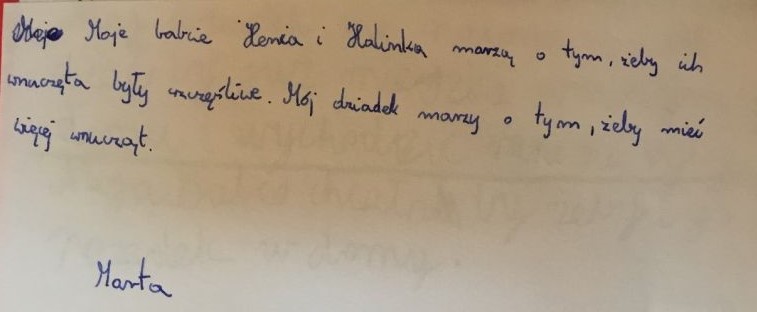 Moje babcie Henia i Halinka marzą o tym, żeby ich
wnuczęta były szczęśliwe. Mój dziadek marzy o tym, żeby mieć
więcej wnucząt.
Marta